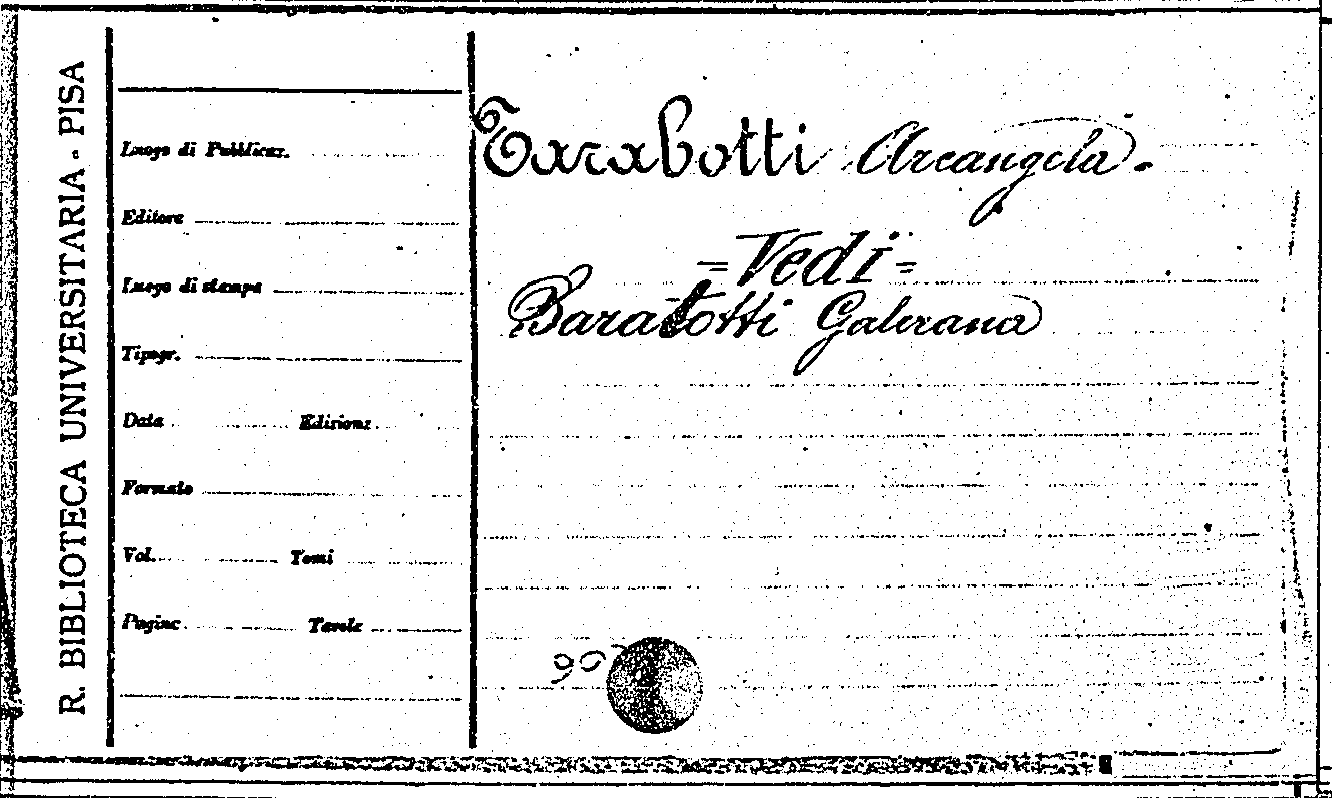 R. BIBLIOTECA UNIVERSITARIA - PISA
Luogo di Pubblicaz.
Editore
Luogo di stampa
Tipogr.
Data Edizione
Formato
Vol. Tomi
Pagine Tavole
Tarabotti Arcangela.
=Vedi=
Baratotti Galerana